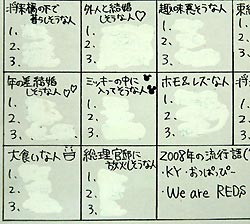 将来橋の下で
暮らしそうな人
1.
2.
3.
外人と結婚
しそうな人♡
1.
2.
3.
趣味悪そうな人
1.
2.
3.
東
1.
2.
3.
年の差結婚
しそうな人♡
1.
2.
3.
ミッキーの中に
入ってそうな人
1.
2.
3.
ホモ&レズな人
1.
2.
3.
1.
2.
3.
大食いな人
1.
2.
3.
総理官邸に
放火しそうな人
1.
2.
3.
2008年の流行語
・KY・おっぱっぴー
・We are REDS